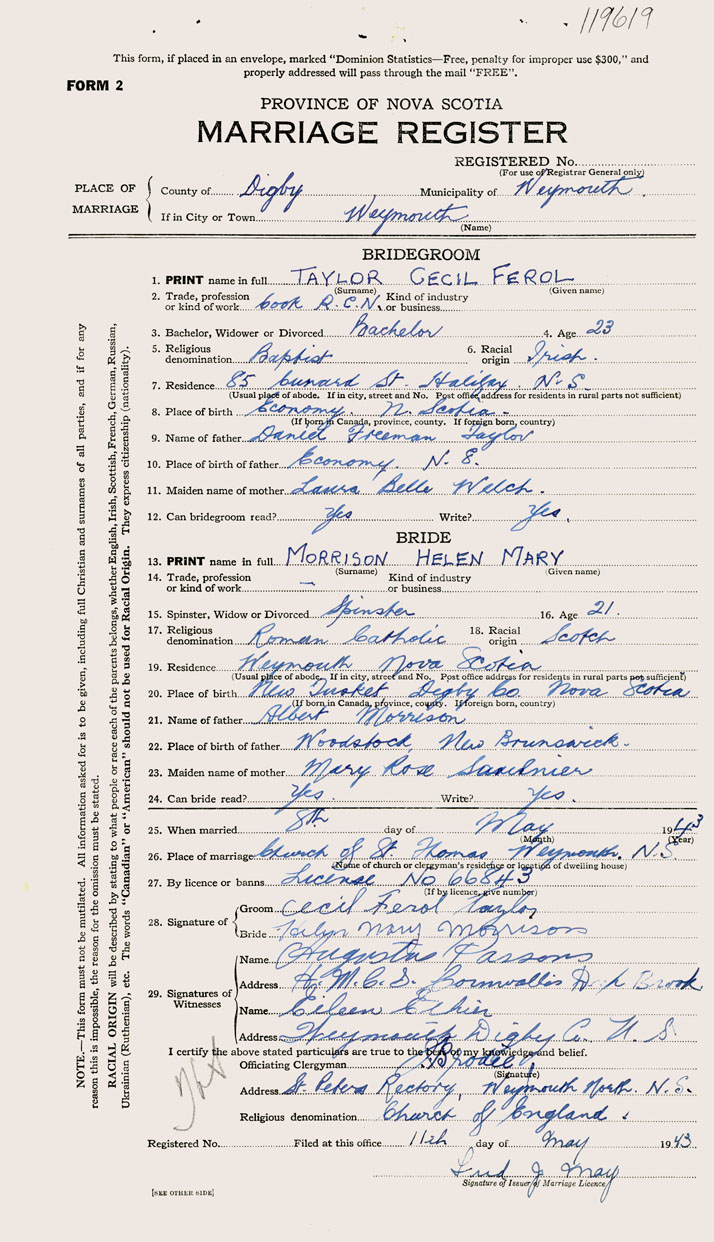 119619
This form, if placed in an envelope, marked "Dominion Statistics—Free, penalty for improper use $300," and
properly addressed will pass through the mail "FREE".
FORM 2
PROVINCE OF NOVA SCOTIA
MARRIAGE REGISTER
REGISTERED No.
(For use of Registrar General only)
PLACE OF MARRIAGE
County of Digby Municipality of Weymouth.
If in City or Town Weymouth
(Name)
BRIDEGROOM
1. PRINT name in full TAYLOR CECIL FEROL
(Surname) (Given name)
2. Trade, profession or kind of work Cook R.C.N. Kind of industry or business
3. Bachelor, Widower or Divorced Bachelor 4. Age 23
5. Religious denomination Baptist 6. Racial origin Irish.
7. Residence 85 Cunard St. Halifax. N.S.
(Usual place of abode. If in city, street and No. Post office address for residents in rural parts not sufficient)
8. Place of birth Economy. N. Scotia.
(If born in Canada, province, county. If foreign born, country)
9. Name of father Daniel Freeman Taylor
10. Place of birth of father Economy. N.S.
11. Maiden name of mother Laura Belle Welch.
12. Can bridegroom read? Yes Write? Yes.
BRIDE
13. PRINT name in full MORRISON HELEN MARY
(Surname) (Given name)
14. Trade, profession or kind of work — Kind of industry or business
15. Spinster, Widow or Divorced Spinster 16. Age 21.
17. Religious denomination Roman Catholic 18. Racial origin Scotch
19. Residence Weymouth Nova Scotia
(Usual place of abode. If in city, street and No. Post office address for residents in rural parts not sufficient)
20. Place of birth New Tusket Digby Co. Nova Scotia
(If born in Canada, province, county. If foreign born, country)
21. Name of father Albert Morrison
22. Place of birth of father Woodstock, New Brunswick.
23. Maiden name of mother Mary Rose Saulnier
24. Can bride read? Yes. Write? Yes.
25. When married 8th day of May 1943
(Month) (Year)
26. Place of marriage Church of St Thomas Weymouth. N.S.
(Name of church or clergyman's residence or location of dwelling house)
27. By licence or banns License No 66843
(If by licence, give number)
28. Signature of
Groom Cecil Ferol Taylor
Bride Mary Morrison
29. Signatures of Witnesses
Name Augustus Parsons
Address H.M.C.S. Cornwallis Deep Brook
Name Eileen Ethier
Address Weymouth Digby Co. N.S.
I certify the above stated particulars are true to the best of my knowledge and belief.
Officiating Clergyman
(Signature)
Address St. Peters Rectory, Weymouth North. N.S.
Religious denomination Church of England.
Registered No. Filed at this office 11th day of May 1943
May
Signature of Issuer of Marriage Licence
[SEE OTHER SIDE]
NOTE.—This form must not be mutilated. All information asked for is to be given, including full Christian and surnames of all parties, and if for any
reason this is impossible, the reason for the omission must be stated.
RACIAL ORIGIN will be described by stating to what people or race each of the parents belongs, whether English, Irish, Scottish, French, German, Russian,
Ukrainian (Ruthenian), etc. The words "Canadian" or "American" should not be used for Racial Origin. They express citizenship (nationality).